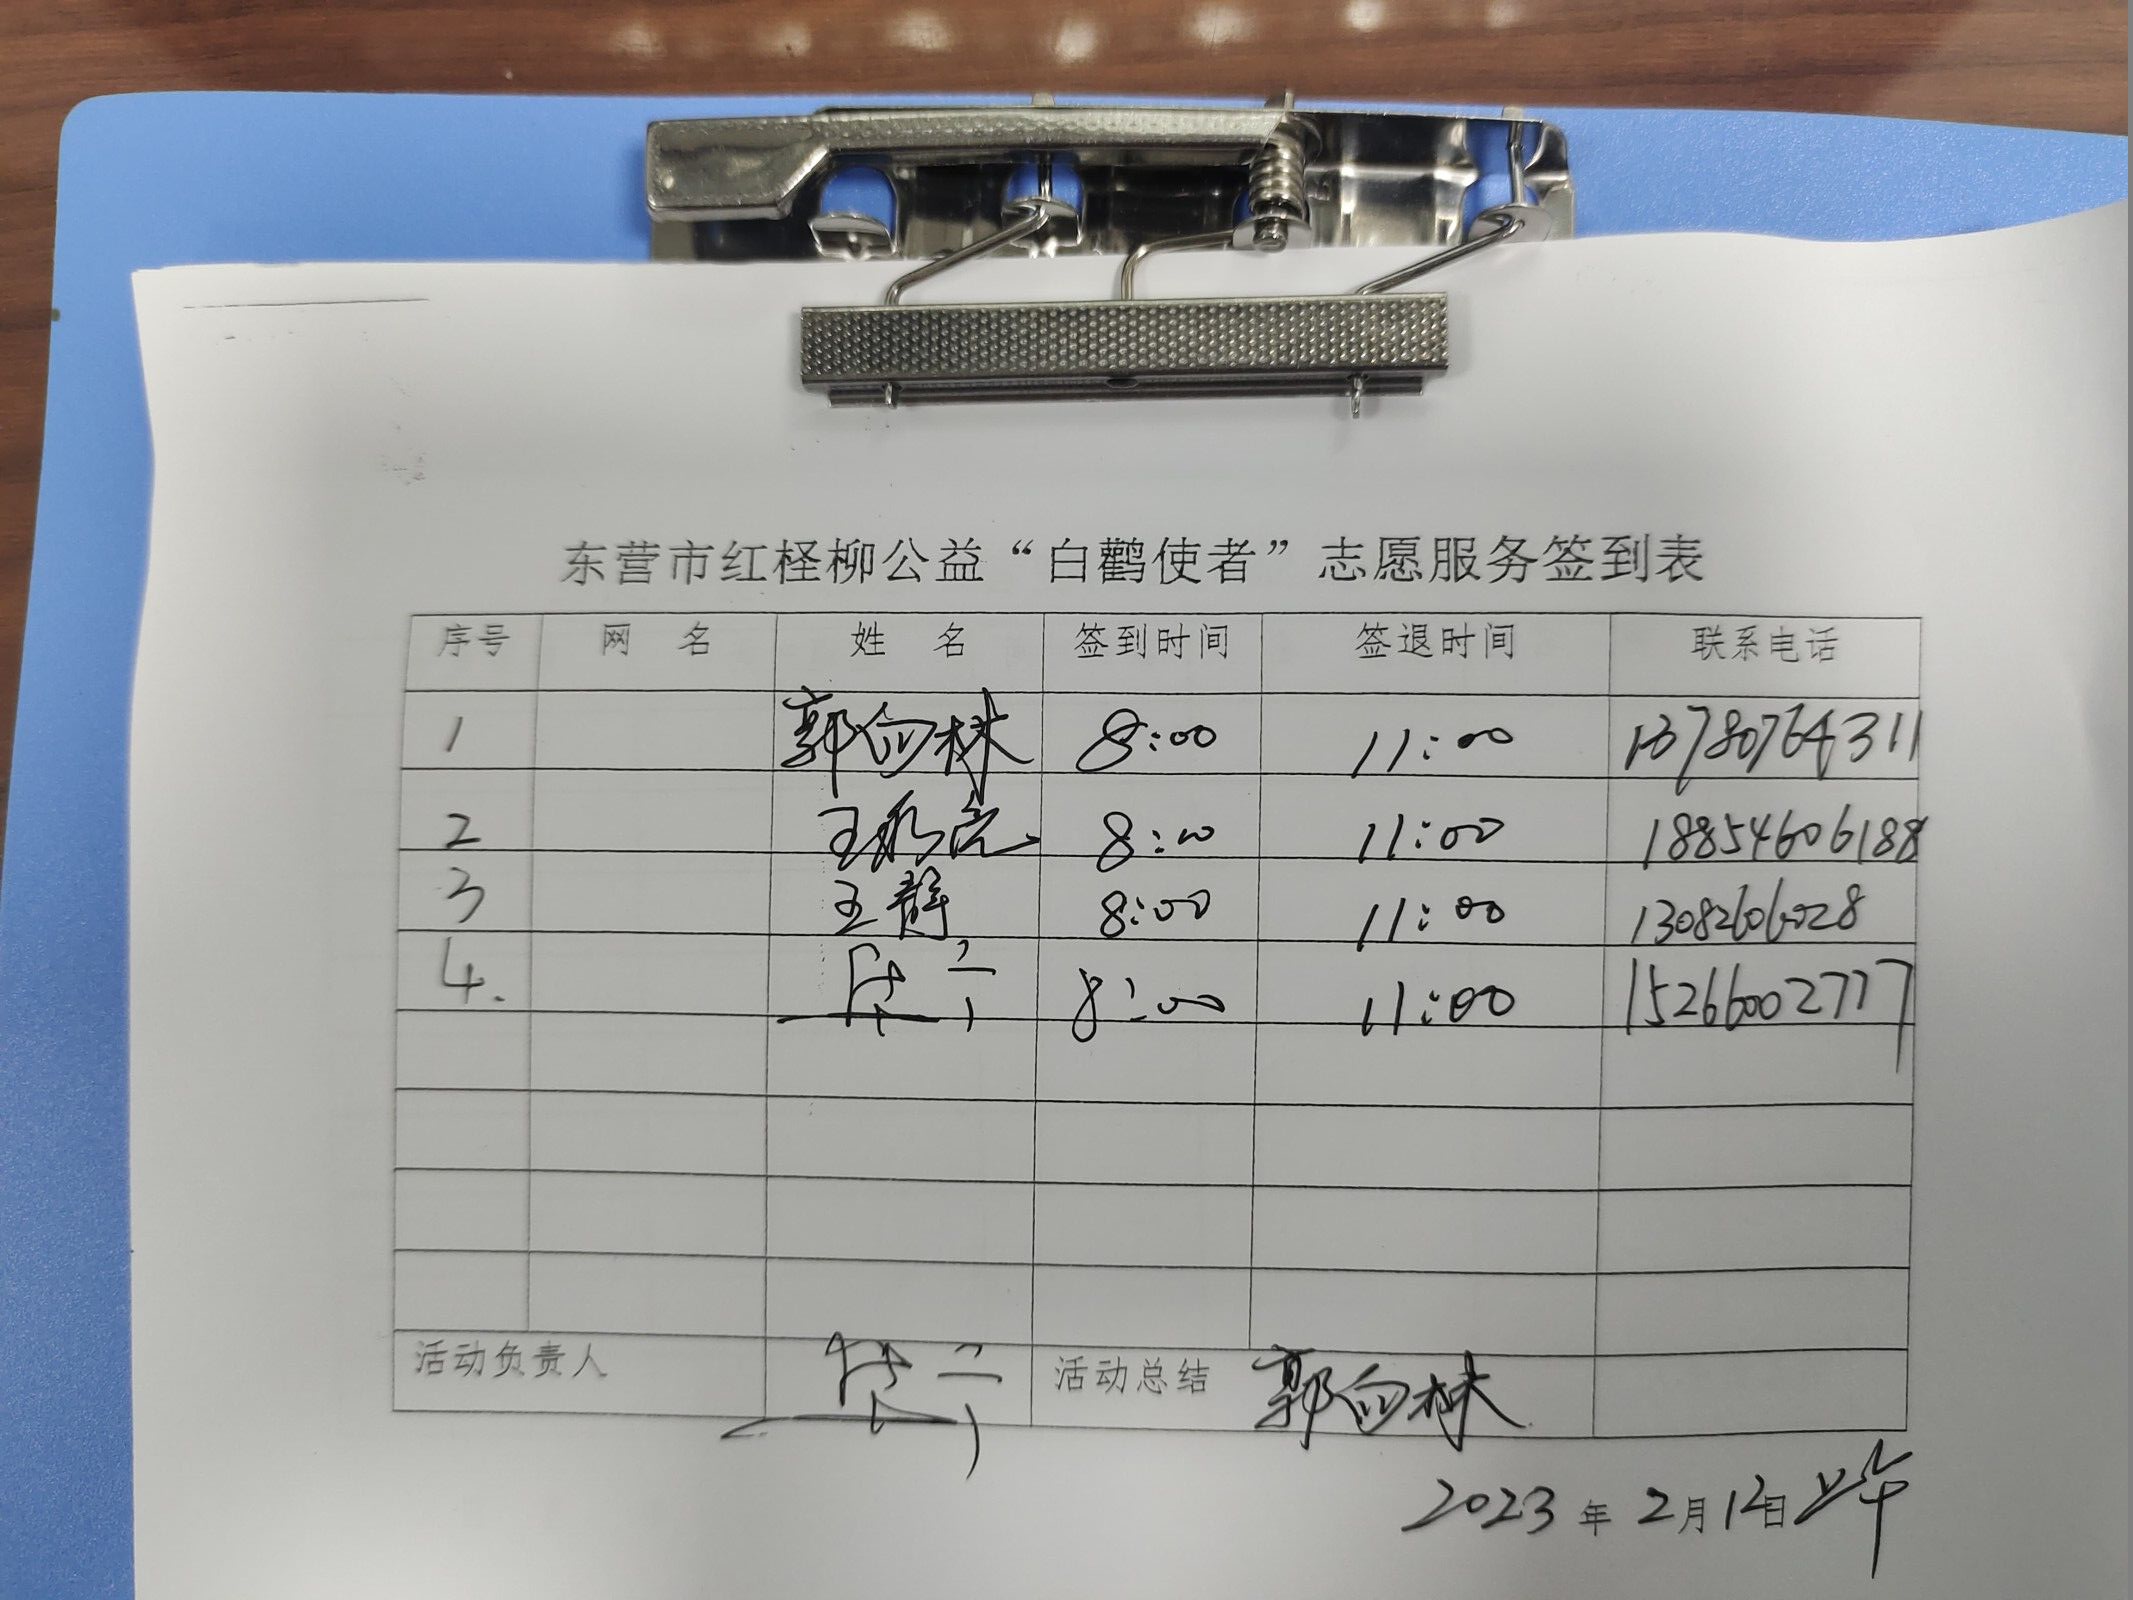 东营市红柽柳公益“白鹳使者”志愿服务签到表
序号 网 名 姓 名 签到时间 签退时间 联系电话
1 郭向林 8:00 11:00 13780764311
2 王 8:00 11:00 18854606188
3 王静 8:00 11:00 13082606028
4. 8:00 11:00 15266002777
活动负责人 活动总结 郭向林
2023年2月12日上午